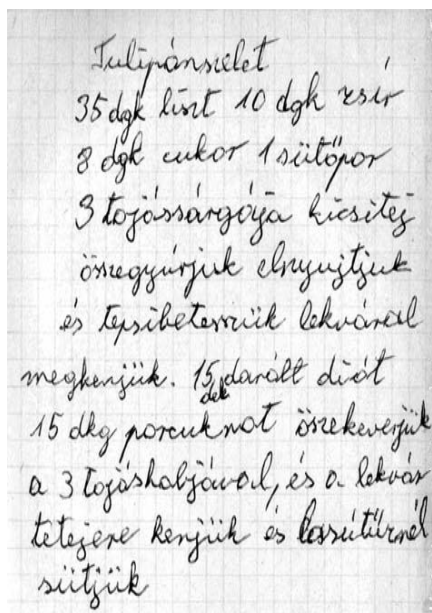 Tulipánszelet
35 dgk liszt 10 dgk zsír
8 dgk cukor 1 sütőpor
3 tojássárgája kicsitej
összegyúrjuk elnyujtjuk
és tepsibetesszük lekvárral
megkenjük. 15 dek darált diót
15 dkg porcukrot összekeverjük
a 3 tojáshabjával, és a lekvár
tetejere kenjük és lassútűznél
sütjük